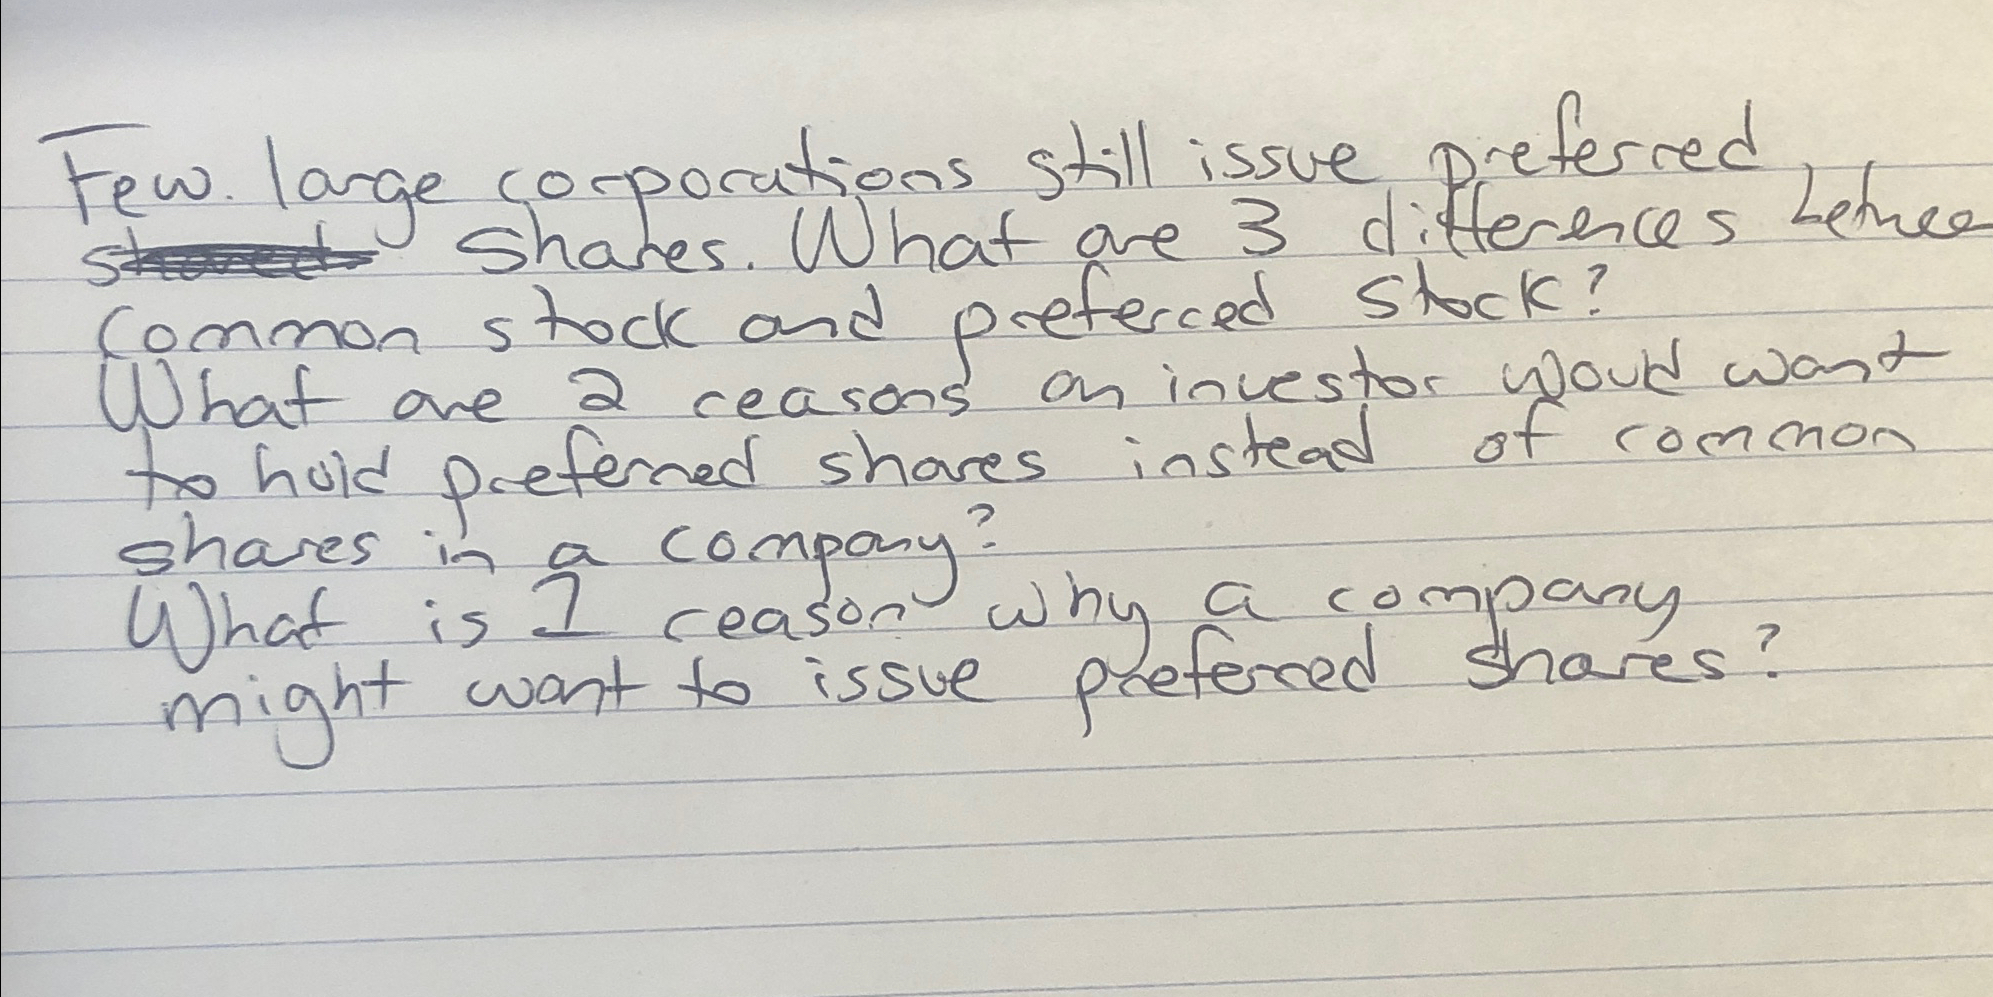 Few large corporations still issue preferred
shares. What are 3 differences betwee
common stock and preferred stock?
What are 2 reasons an investor would want
to hold preferred shares instead of common
shares in a company?
What is 1 reason why a company
might want to issue preferred shares?